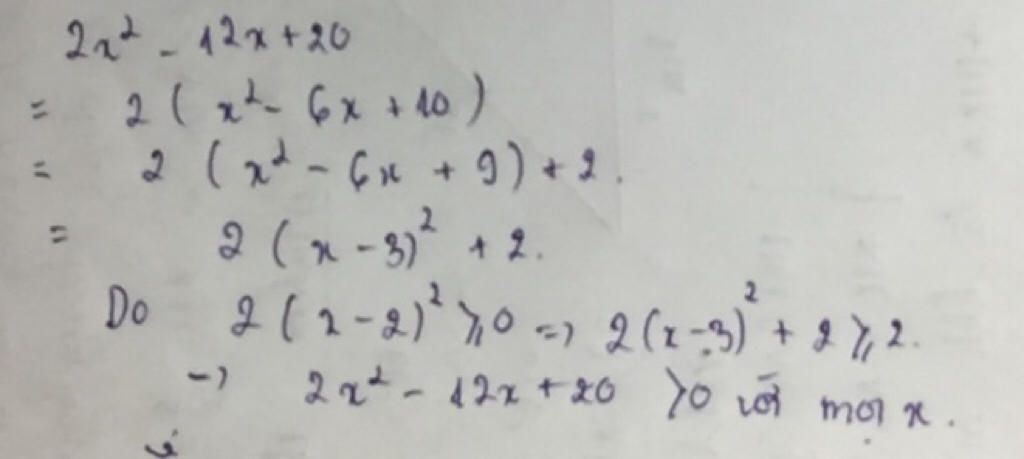 2x² - 12x + 20
= 2 ( x² - 6x + 10 )
= 2 ( x² - 6x + 9 ) + 2.
= 2 ( x - 3)² + 2.
Do 2 ( x - 2)² ⩾ 0 => 2 (x - 3)² + 2 ⩾ 2.
-> 2x² - 12x + 20 > 0 với mọi x.